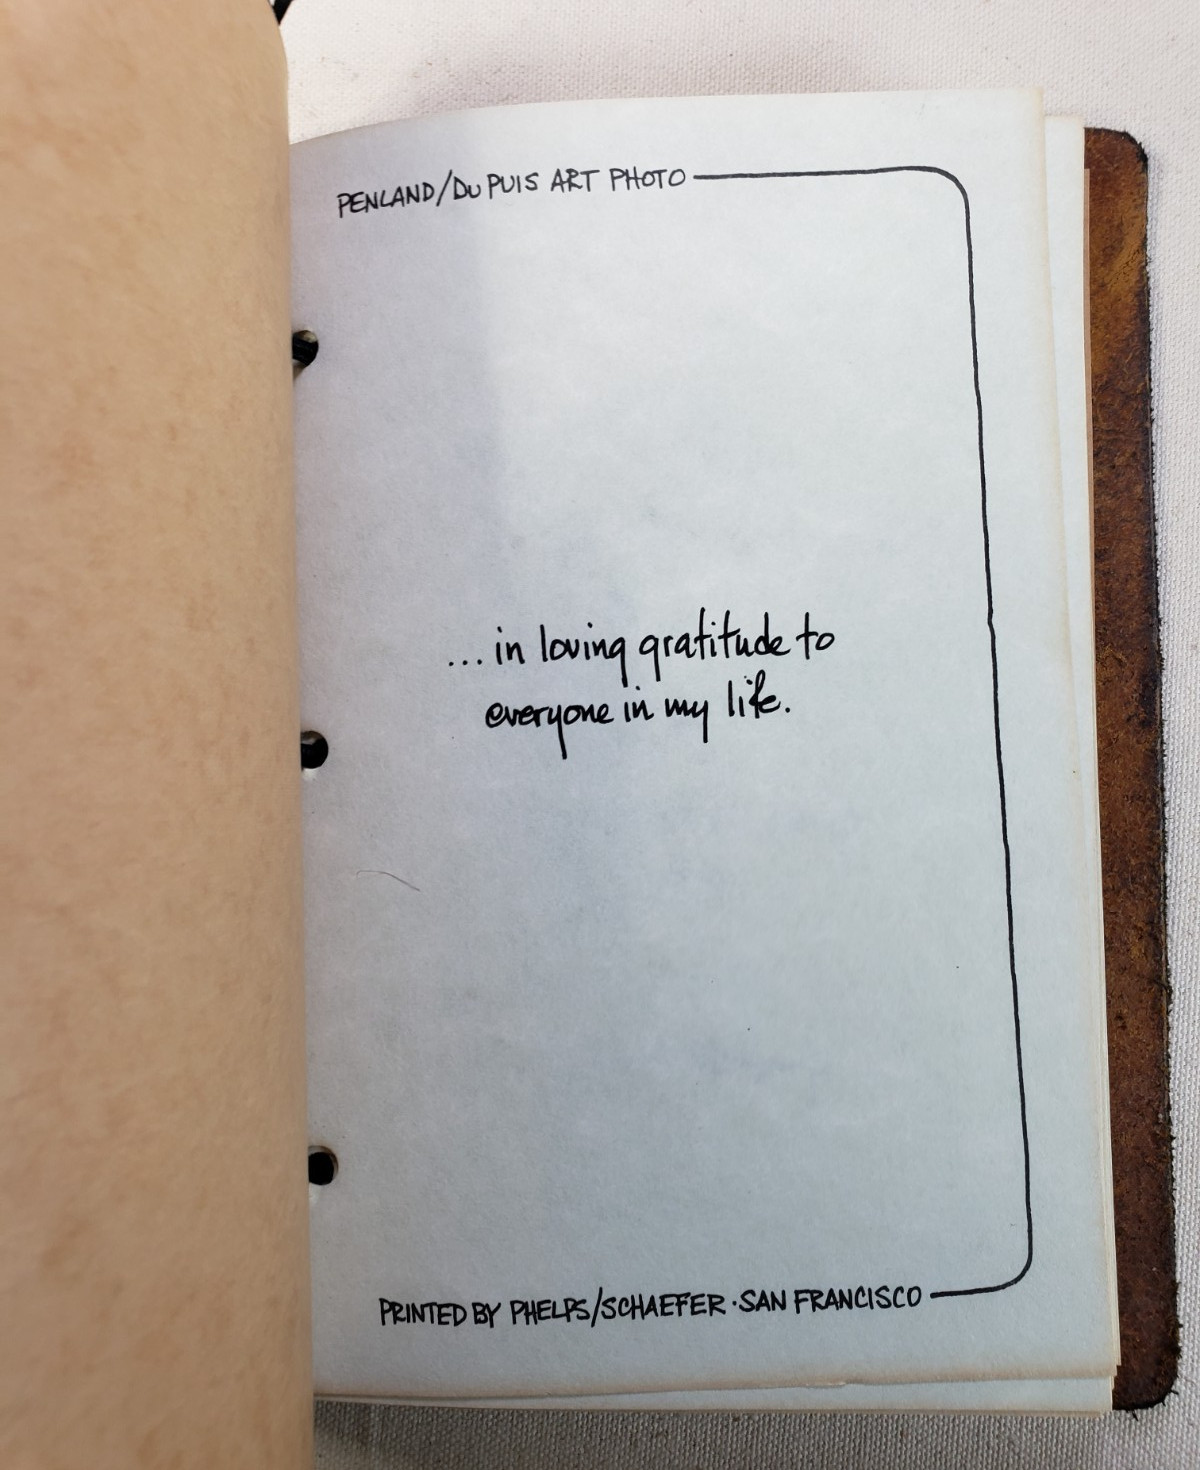 PENLAND/DU PUIS ART PHOTO
... in loving gratitude to
everyone in my life.
PRINTED BY PHELPS/SCHAEFER · SAN FRANCISCO